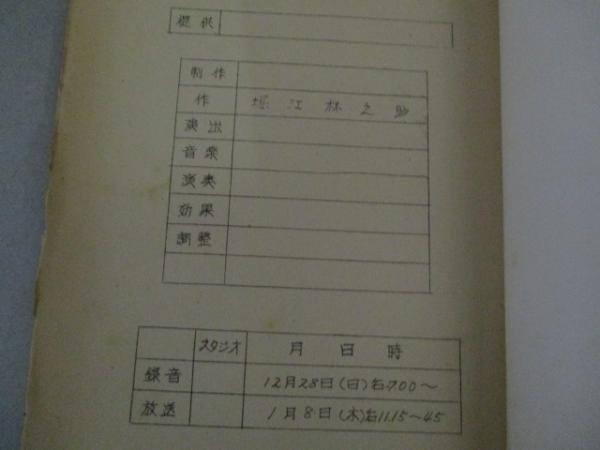 提供
制作
作 堀江林之助
演出
音楽
演奏
効果
調整
スタジオ 月 日 時
録音 12月28日(日)后7.00〜
放送 1月8日(木)后11.15〜45